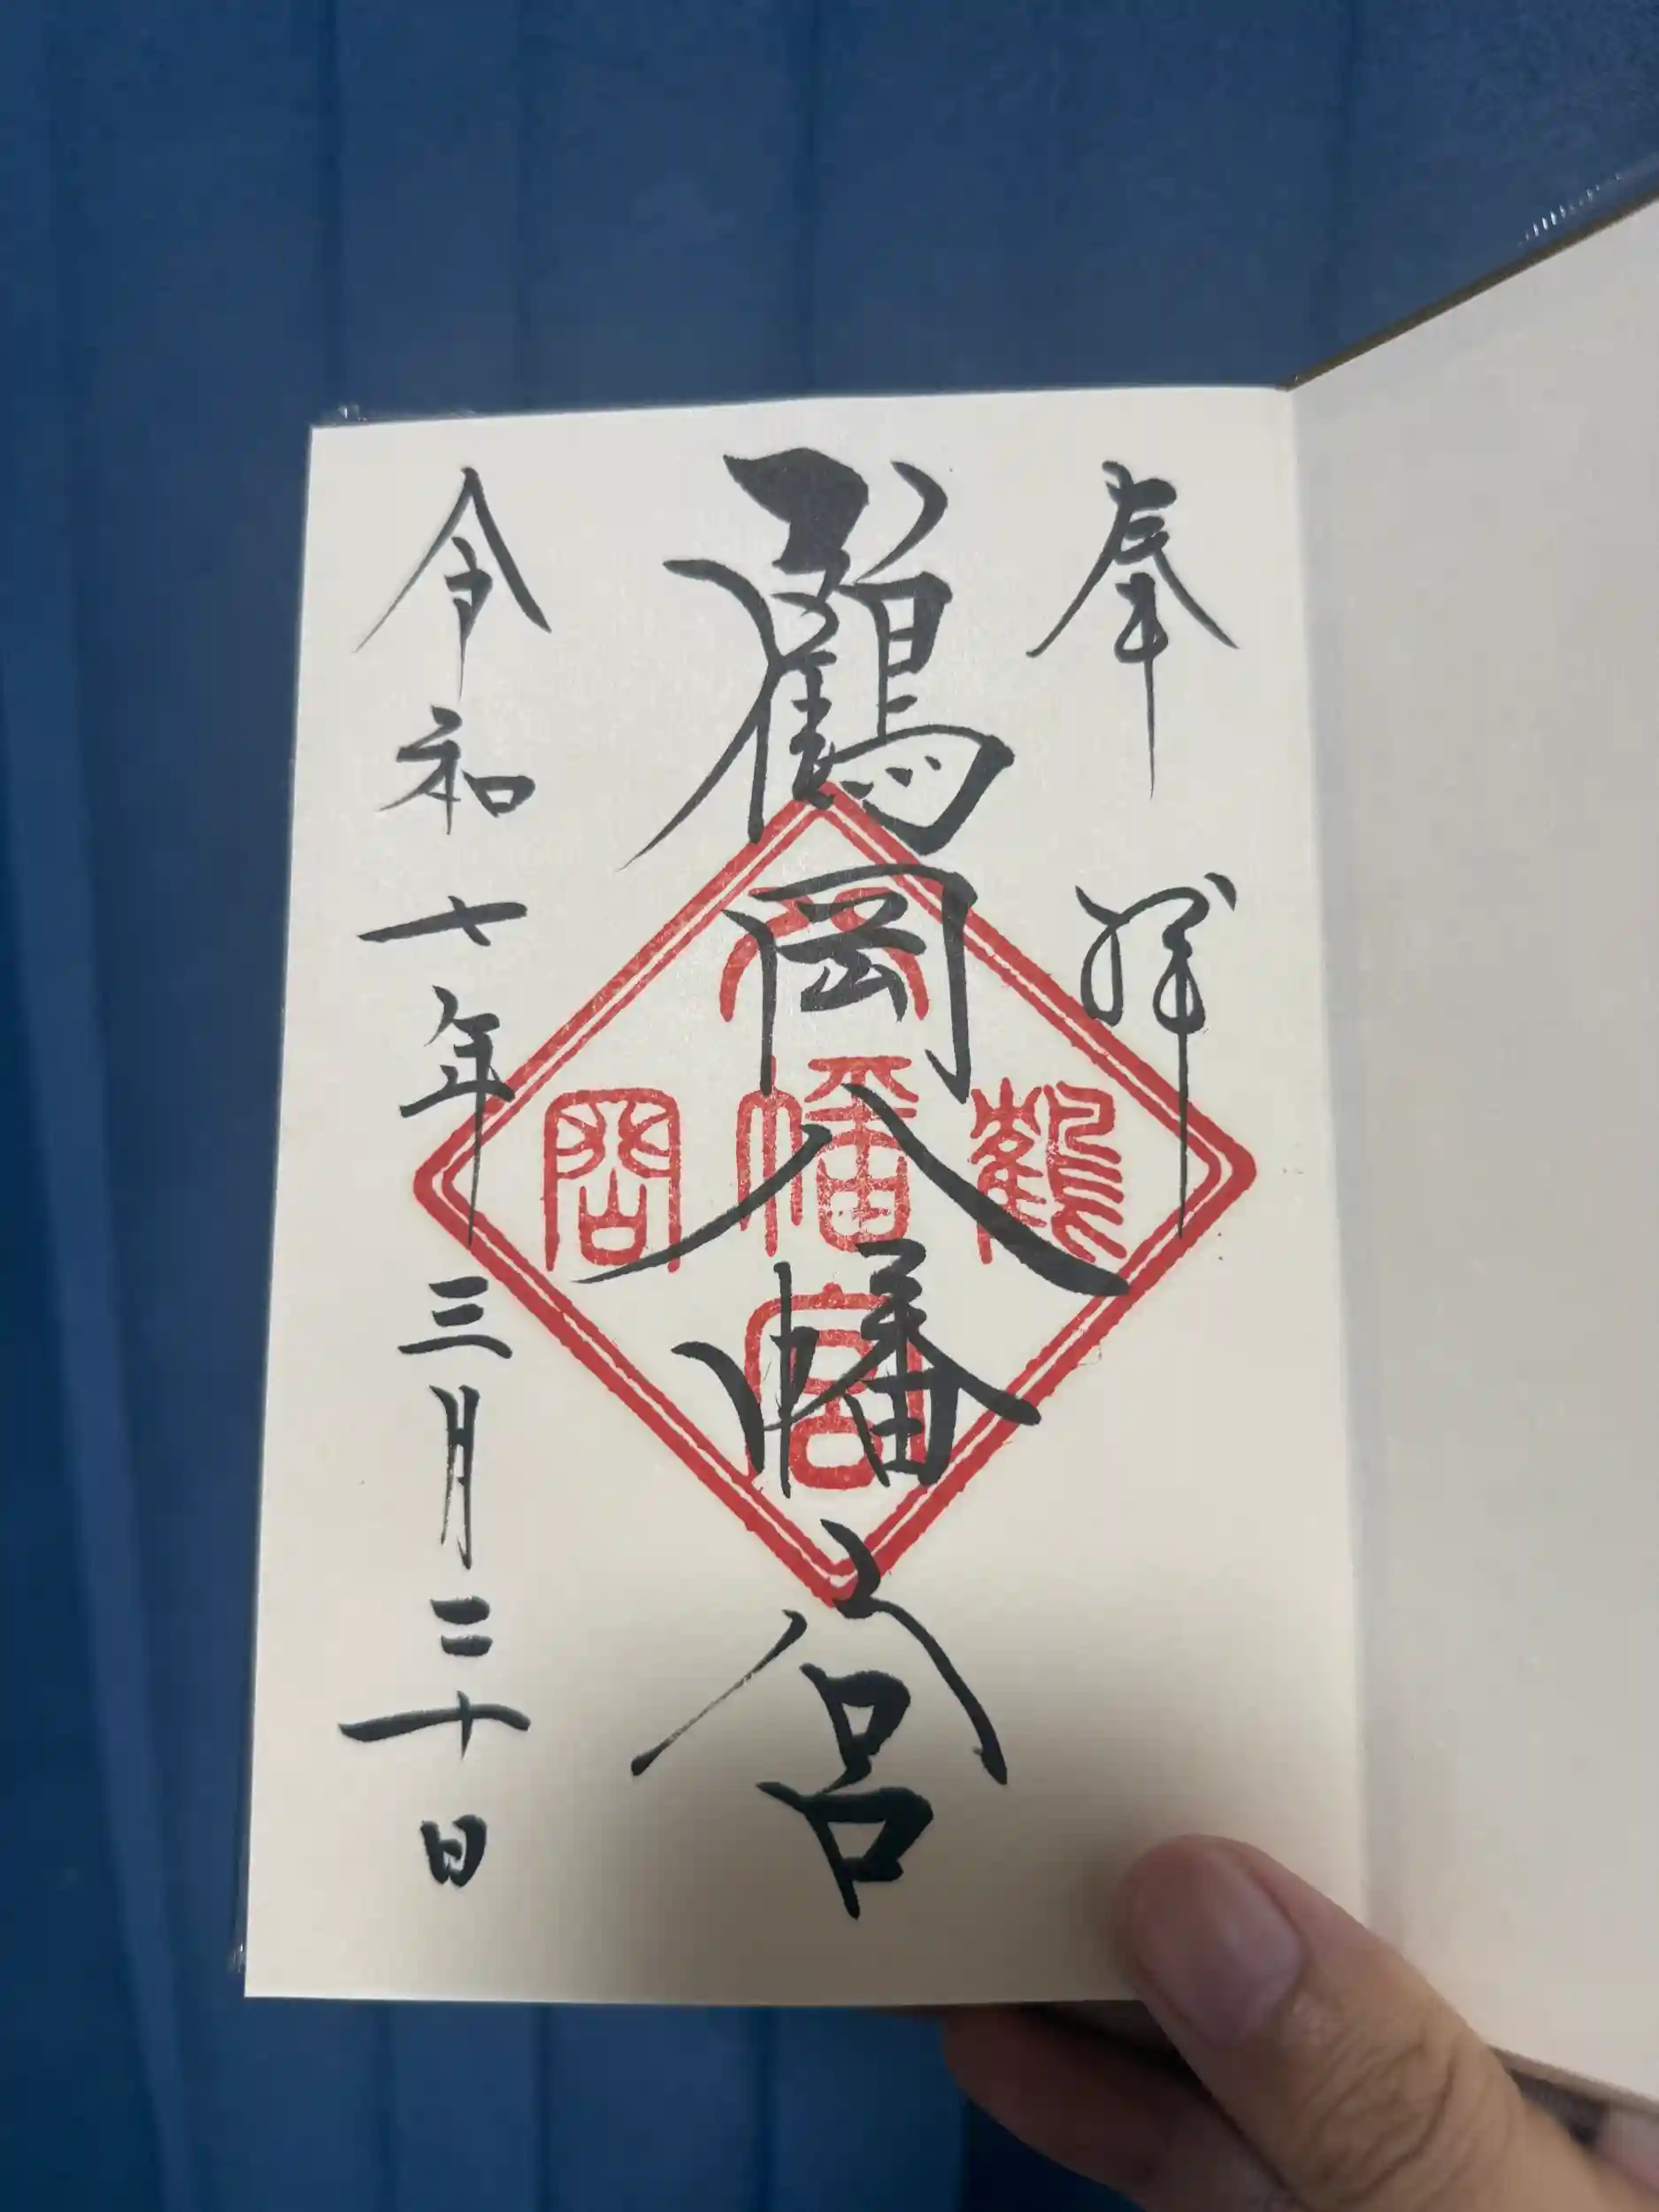 奉拝
鶴岡八幡宮
令和七年三月二十日
鶴岡八幡宮